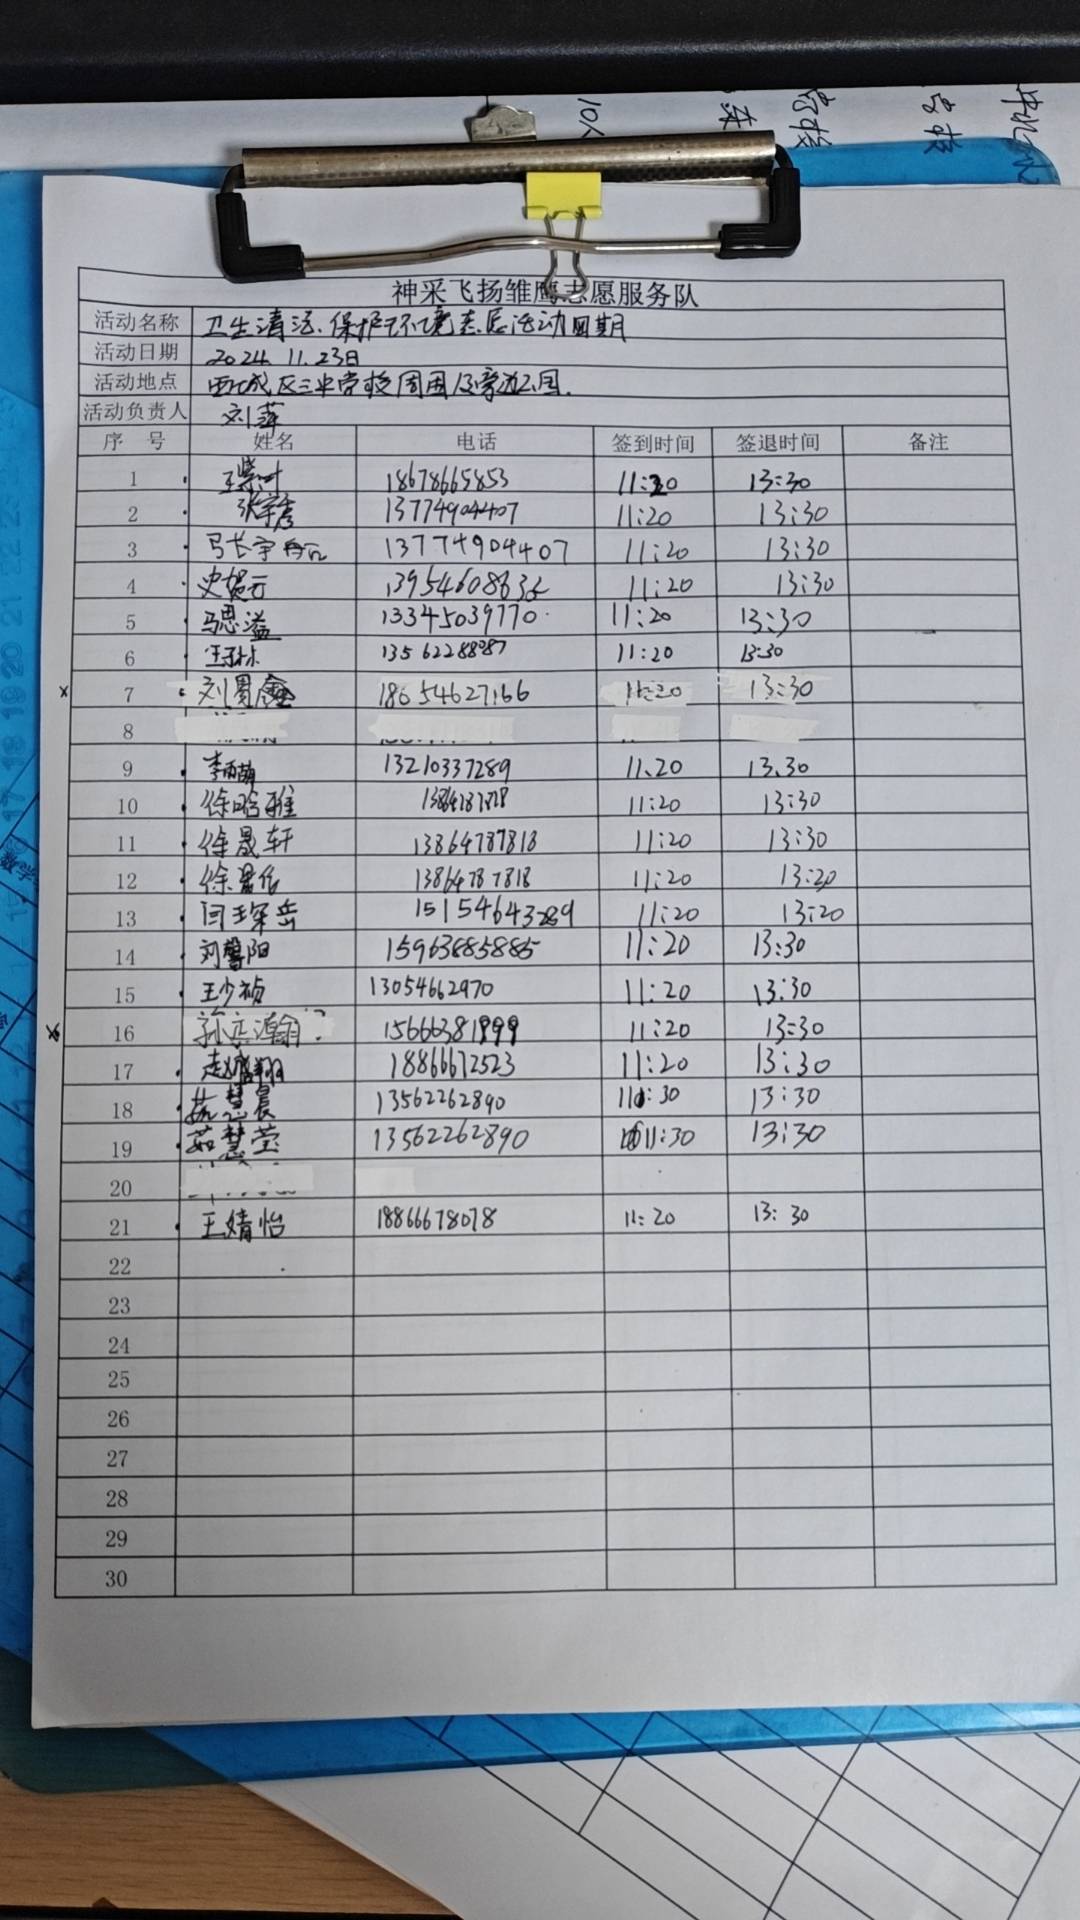 神采飞扬雏鹰志愿服务队
活动名称 卫生清洁.保护环境志愿活动周期
活动日期 2024.11.23日
活动地点 西城区三中学校周围及旁边公园.
活动负责人 刘萍
序 号 姓名 电话 签到时间 签退时间 备注
1 18678665853 11:20 13:30
2 张宇彦 13774904407 11:20 13:30
3 13774904407 11:20 13:30
4 史媞云 11:20 13:30
5 马思溢 13345039770 11:20 13:30
6 13562288987 11:20 13:30
x 7 刘昱鑫 18654627166 11:20 13:30
8
9 李雨萌 13210337289 11.20 13.30
10 徐晗雅 11:20 13:30
11 徐晟轩 13864787818 11:20 13:30
12 13864787818 11:20 13:20
13 闫琛岳 15154643289 11:20 13:20
14 刘馨阳 15963885885 11:20 13:30
15 王少祯 13054662970 11:20 13:30
x 16 孙正瀚 15666381999 11:20 13:30
17 赵盛翔 18866672523 11:20 13:30
18 茹慧晨 13562262890 11:30 13:30
19 茹慧莹 13562262890 11:30 13:30
20
21 王婧怡 18866678078 11:20 13:30
22
23
24
25
26
27
28
29
30